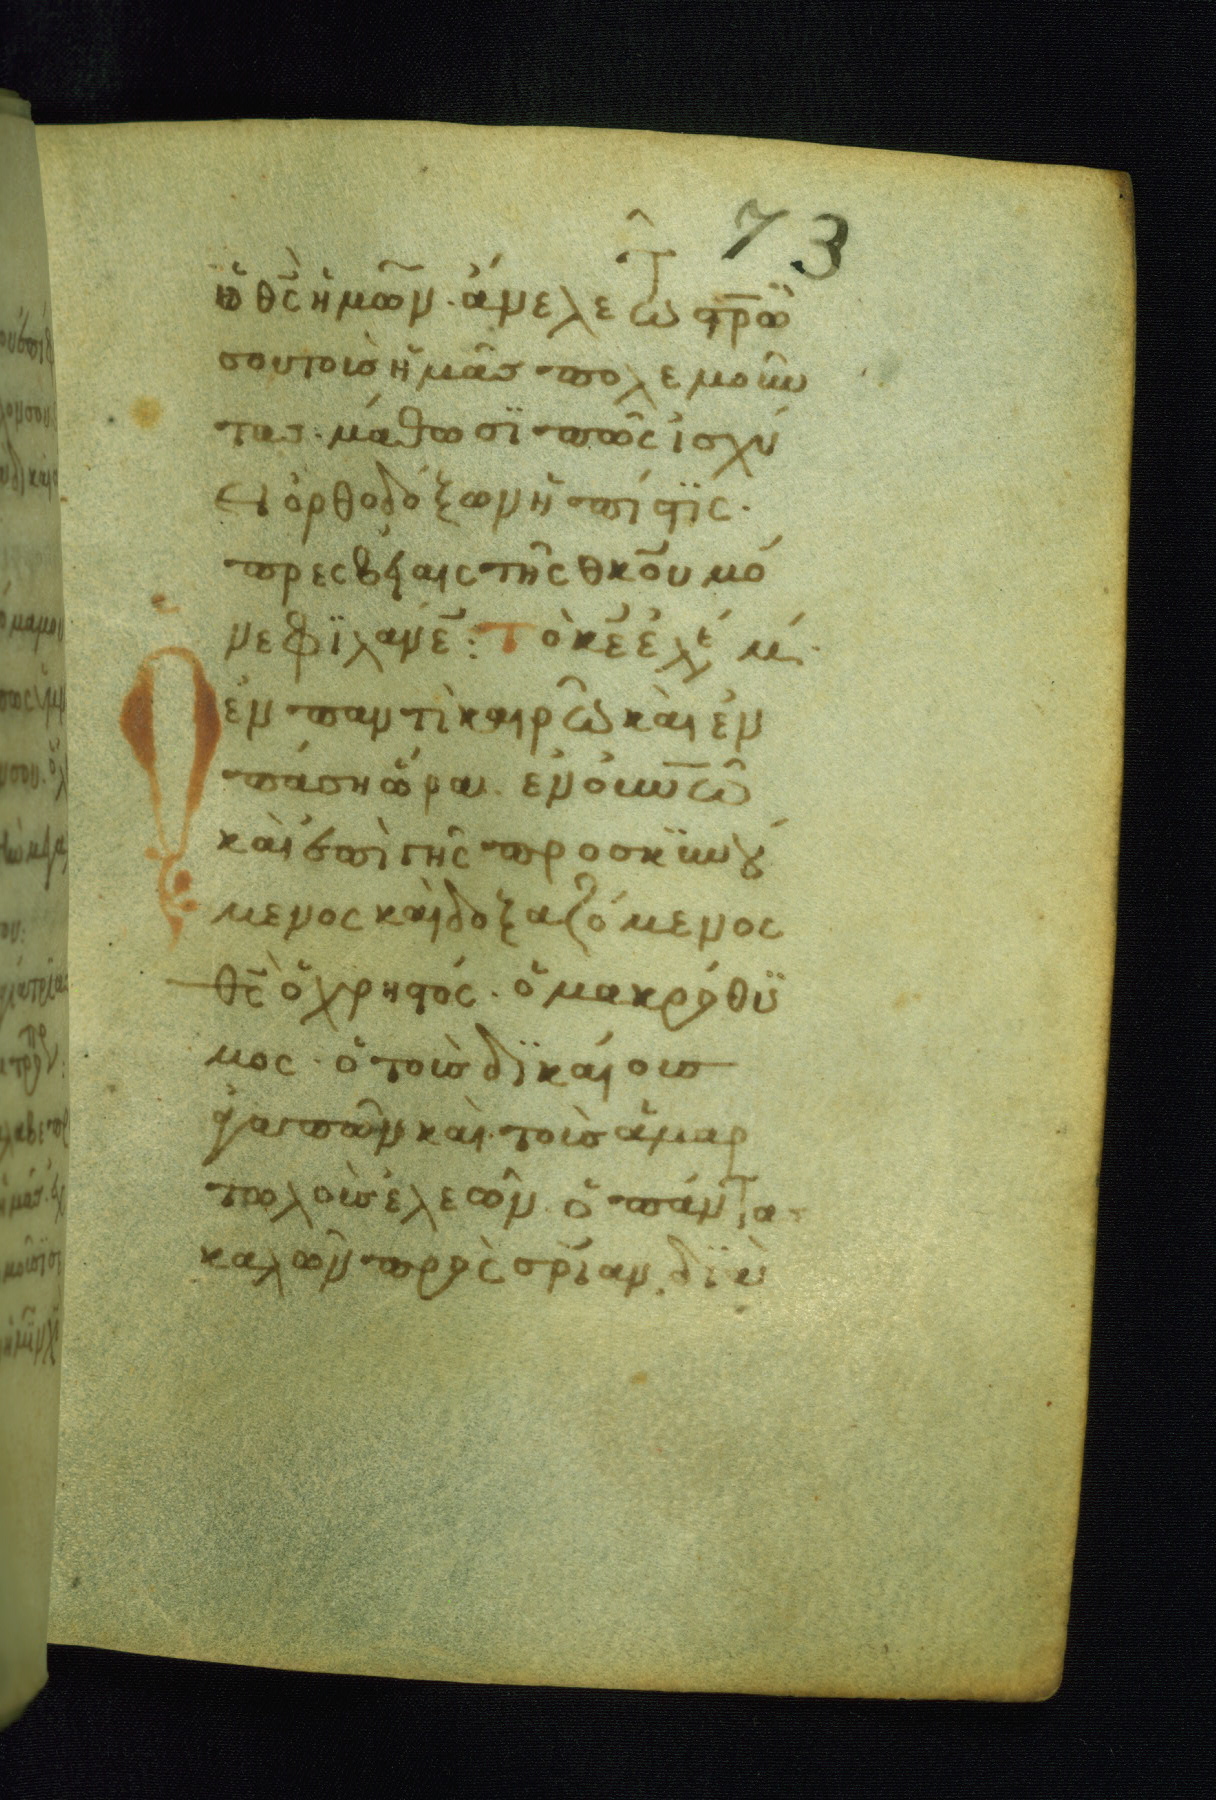 73
ὁ θ̅ς̅ ἡμῶν. ἄνελε τῶ στ̅ρῶ
σου τοὺς ἡμᾶς πολεμοῦν
τας. μάθωσϊ πῶς ἰσχύ
ει ὀρθοδόξων ἡ πίστϊς.
πρεσβείαις τῆς θ̅κ̅ου μό
νε φϊλάν̅ε̅: Τὸ κ̅ε̅ ἐλέ μ.
Ὁ ἐν παντὶ καιρῶ καὶ ἐν
πάση ὥρα. ἐν ὀυ̅ν̅ῶ
καὶ ἐπὶ γῆς προσκϋνού
μενος καὶ δοξαζόμενος
θ̅ς̅ ὁ χρηστός. ὁ μακρόθϋ
μος. ὁ τοὺς δϊκαίους
ἀγαπῶν καὶ τοὺς ἁμαρ
τωλοὺς ἐλεῶν. ὁ πάντας
καλῶν πρὸς σ̅ρ̅ίαν. δϊὰ